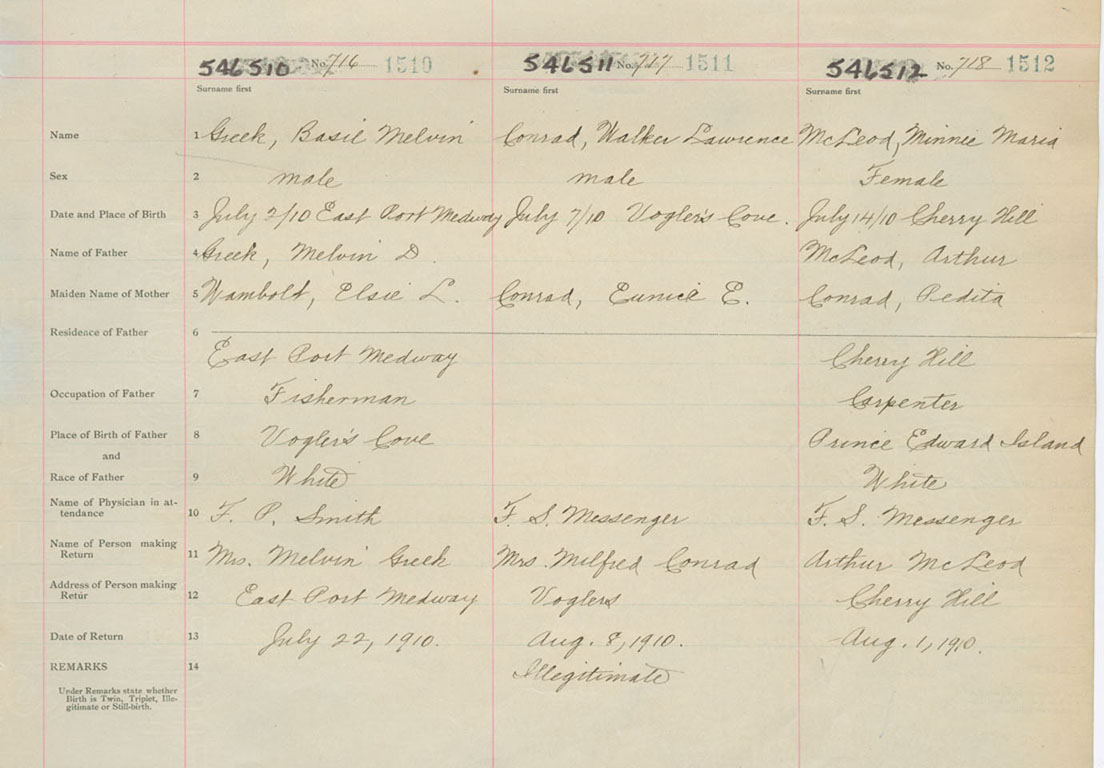 546510 No. 716 1510 546511 No. 717 1511 546512 No. 718 1512
Surname first Surname first Surname first
Name 1 Greek, Basil Melvin Conrad, Walker Lawrence McLeod, Minnie Maria
Sex 2 male male Female
Date and Place of Birth 3 July 2/10 East Port Medway July 7/10 Vogler's Cove. July 14/10 Cherry Hill
Name of Father 4 Greek, Melvin D. McLeod, Arthur
Maiden Name of Mother 5 Wambolt, Elsie L. Conrad, Eunice E. Conrad, Pedita
Residence of Father 6
East Port Medway Cherry Hill
Occupation of Father 7 Fisherman Carpenter
Place of Birth of Father 8 Vogler's Cove Prince Edward Island
and
Race of Father 9 White White
Name of Physician in at-
tendance 10 F. P. Smith F. S. Messenger F. S. Messenger
Name of Person making
Return 11 Mrs. Melvin Greek Mrs. Milfred Conrad Arthur McLeod
Address of Person making
Retur 12 East Port Medway Voglers Cherry Hill
Date of Return 13 July 22, 1910. Aug. 8, 1910. Aug. 1, 1910.
REMARKS 14 Illegitimate
Under Remarks state whether
Birth is Twin, Triplet, Ille-
gitimate or Still-birth.